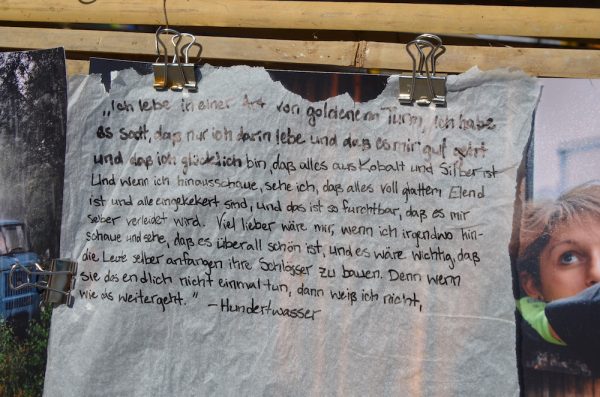 „Ich lebe in einer Art von goldenem Turm, ich habe
es satt, daß nur ich darin lebe und daß es mir gut geht
und daß ich glücklich bin, daß alles aus Kobalt und Silber ist
Und wenn ich hinausschaue, sehe ich, daß alles voll glattem Elend
ist und alle eingekekert sind, und das ist so furchtbar, daß es mir
selber verleidet wird. Viel lieber wäre mir, wenn ich irgendwo hin-
schaue und sehe, daß es überall schön ist, und es wäre wichtig, daß
die Leute selber anfangen ihre Schlösser zu bauen. Denn wenn
sie das endlich nicht einmal tun, dann weiß ich nicht,
wie das weitergeht."
- Hundertwasser